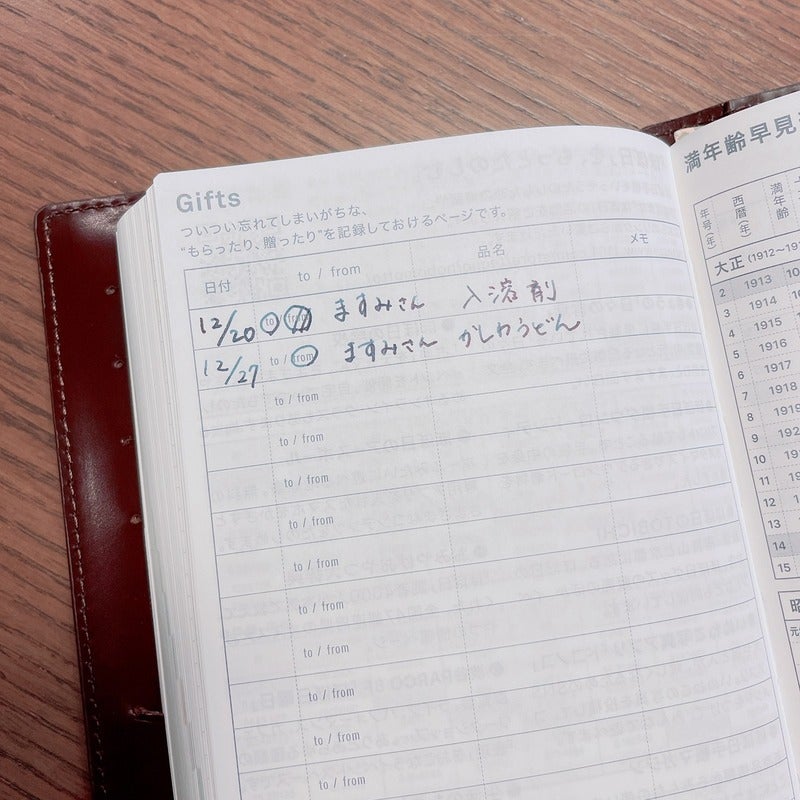 Gifts
ついつい忘れてしまいがちな、
“もらったり、贈ったり”を記録しておけるページです。
日付 to / from 品名 メモ
12/20 to / from ますみさん 入溶剤
12/27 to / from ますみさん かしわうどん
to / from
to / from
to / from
to / from
to / from
to / from
to / from
to / from
to / from
to / from
満年齢早見
年号(年) 西暦(年) 満年齢
大正(1912〜19
2 1913 10
3 1914 10
4 1915 10
5 1916
6 1917
7 1918
8
9
10
11
12
13
14
15
昭